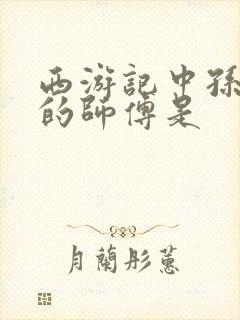 西游記中孫
的師傅是
月蘭彤蕙